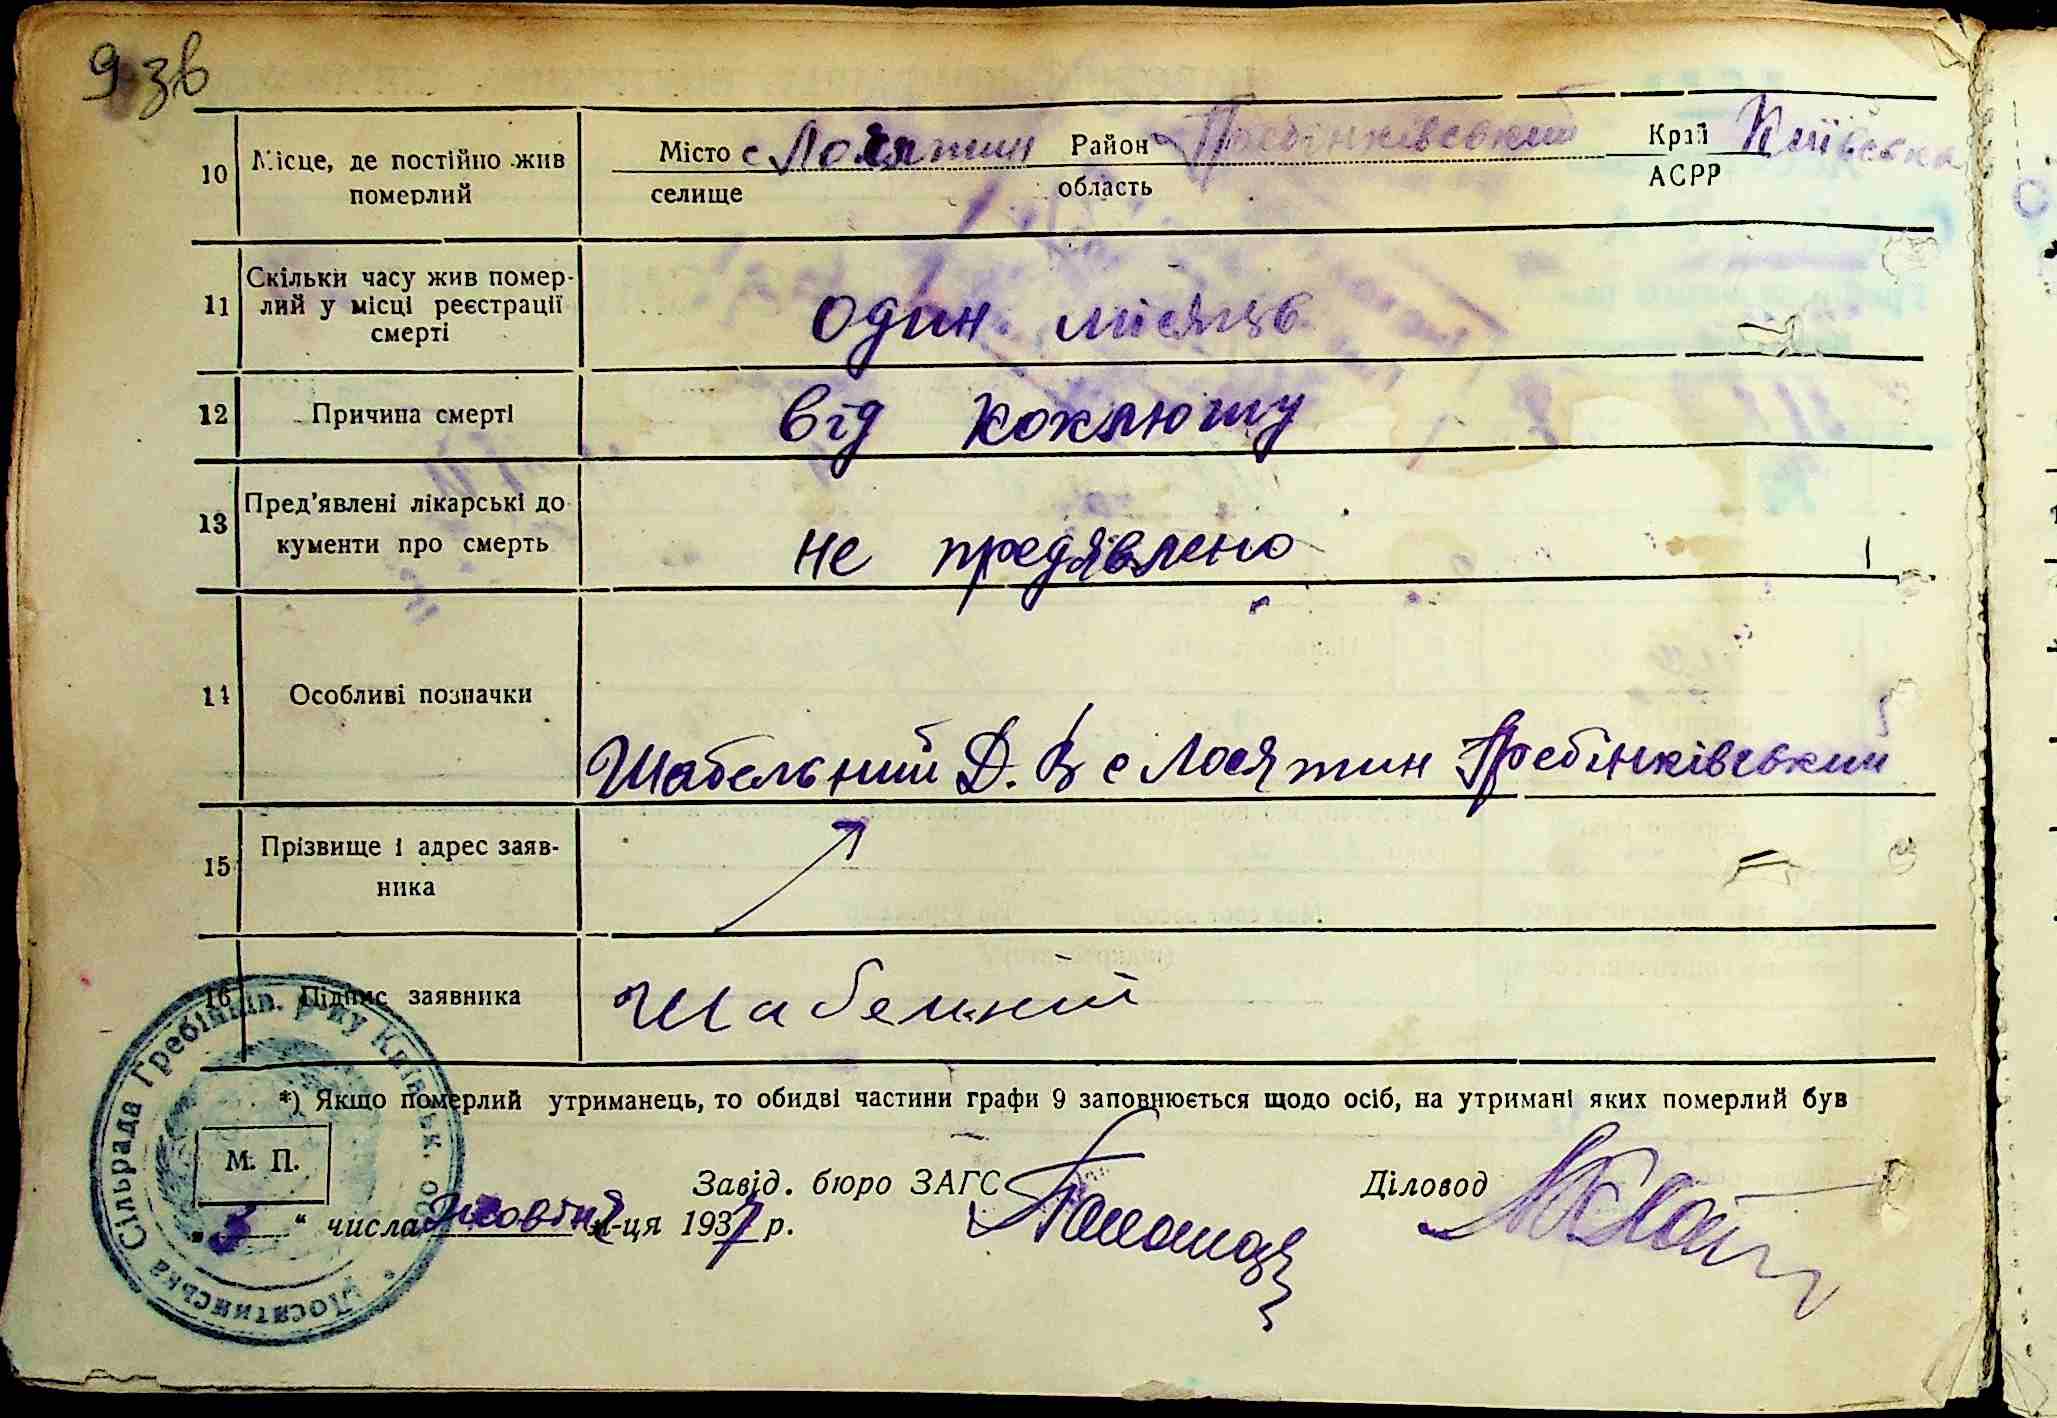 9 зв
10 Місце, де постійно жив
померлий
Місто с Лосятин Район Гребінківський Край Київська
селище область АСРР
11 Скільки часу жив помер-
лий у місці реєстрації
смерті
один місяць
12 Причина смерті від коклюшу
13 Пред'явлені лікарські до
кументи про смерть
не предявлено
14 Особливі позначки
Шабельний Д. В с Лосятин Гребінківський
15 Прізвище і адрес заяв-
ника
16 Підпис заявника Шабельний
*) Якщо померлий утриманець, то обидві частини графи 9 заповнюється щодо осіб, на утримані яких померлий був
М. П.
Завід. бюро ЗАГС Діловод
"3" числа жовтня м-ця 1937 р.
Лосятинська Сільрада Гребінків. р-ну Київськ. об